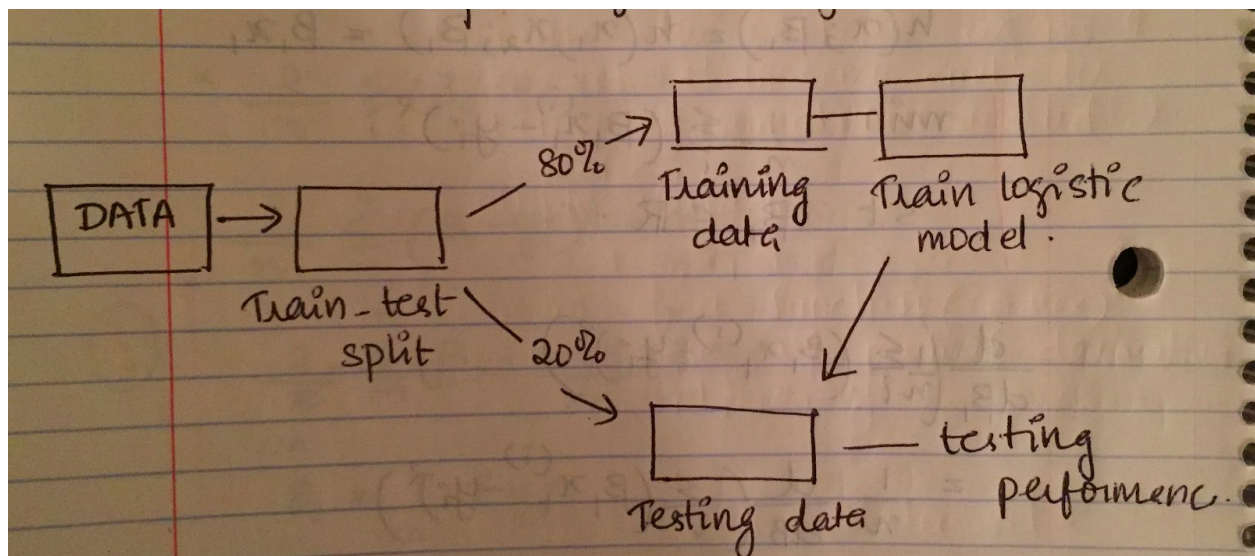 DATA
Train-test
split
80%
20%
Training
data
Train logistic
model.
Testing data
testing
performenc.